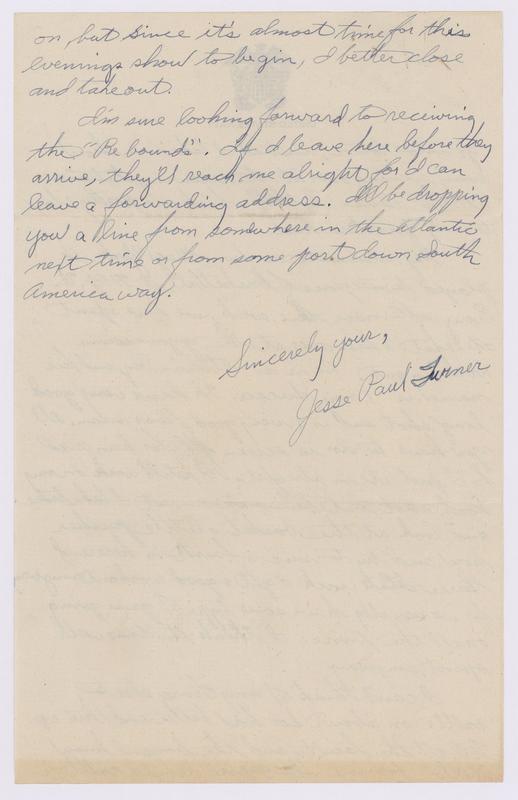 on, but since it's almost time for this
evenings show to begin, I better close
and take out.
I'm sure looking forward to receiving
the "Rebounds". If I leave here before they
arrive, they'll reach me alright for I can
leave a forwarding address. I'll be dropping
you a line from somewhere in the atlantic
next time or from some port down South
America way.
Sincerely your,
Jesse Paul Turner